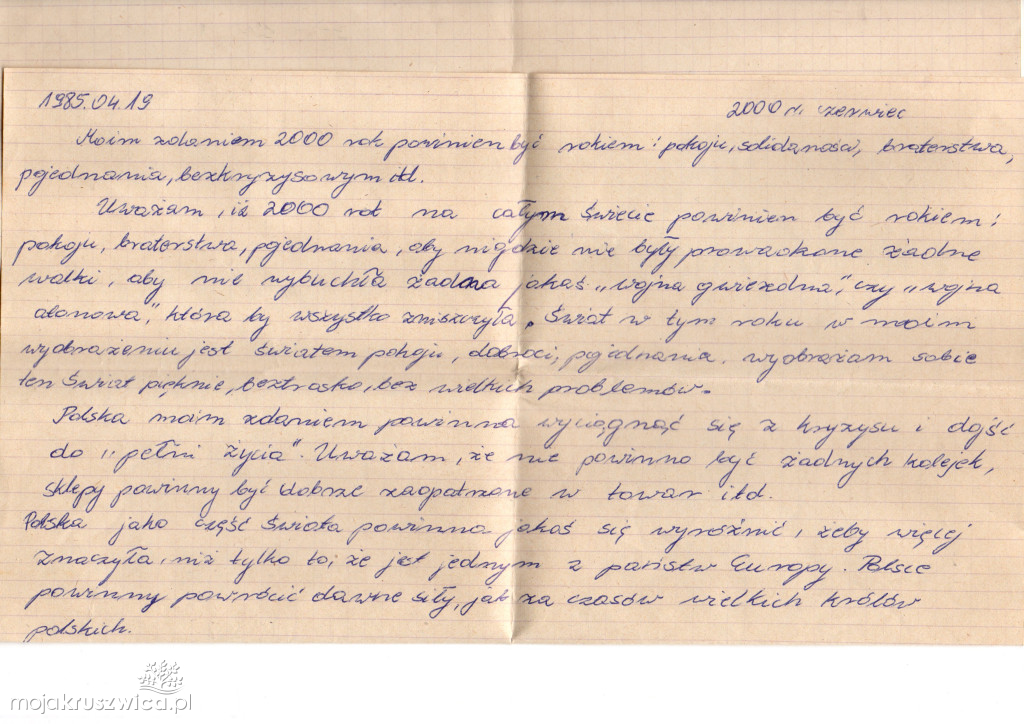 1985.04.19 2000 r. czerwiec
Moim zdaniem 2000 rok powinien być rokiem: pokoju, solidarności, braterstwa,
pojednania, bezkryzysowym itd.
Uważam, iż 2000 rok na całym świecie powinien być rokiem:
pokoju, braterstwa, pojednania, aby nigdzie nie były prowadzone żadne
walki, aby nie wybuchła żadna jakaś „wojna gwiezdna", czy „wojna
atomowa", która by wszystko zniszczyła. Świat w tym roku w moim
wyobrażeniu jest światem pokoju, dobroci, pojednania. wyobrażam sobie
ten świat pięknie, beztrosko, bez wielkich problemów.
Polska moim zdaniem powinna wyciągnąć się z kryzysu i dojść
do „pełni życia". Uważam, że nie powinno być żadnych kolejek,
sklepy powinny być dobrze zaopatrzone w towar itd.
Polska jako część świata powinna jakoś się wyróżnić, żeby więcej
znaczyła, niż tylko to, że jest jednym z państw Europy. Polsce
powinny powrócić dawne siły, jak za czasów wielkich królów
polskich.
mojakruszwica.pl